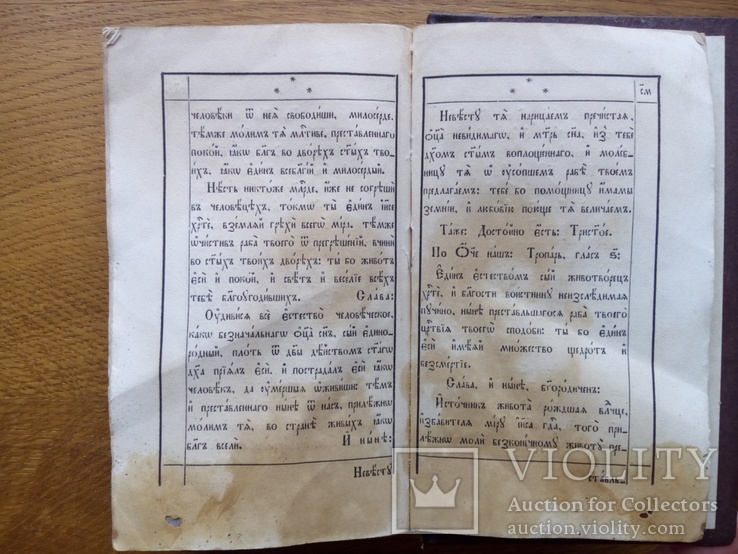 человѣки ѿ неѧ свободиши, милосерде,
тѣмже молим тѧ мл҃тиве, преставленнаго
покой, ꙗкѡ бл҃гъ во дворѣхъ ст҃ыхъ тво‑
ихъ, ꙗкѡ є҆динъ всебл҃гій и҆ милосердый.
Нѣсть никтоже мл҃рде, и҆же не согрѣши
въ человѣцѣхъ, токмѡ ты є҆динъ і҆и҃се
хр҃те, вземлѧй грѣхи всегѡ мі́ра, тѣмже
ѡ҆чистивъ раба твоего ѿ прегрѣшеній, вчини
во ст҃ыхъ твоихъ дворѣхъ: ты бо животъ
є҆си и҆ покой, и҆ свѣтъ и҆ веселіе всѣхъ
тебѣ бл҃гоугодившихъ. Слава:
Оу҆дивисѧ всѐ є҆стество человѣческое,
какѡ безначальнагѡ ѻ҆ц҃а сн҃ъ, сый є҆дино‑
родный, плоть ѿ дв҃ы дѣйствомъ ст҃агѡ
дх҃а прїѧлъ є҆си, и҆ пострадалъ є҆си ꙗкѡ
человѣкъ, да оу҆мершыѧ ѡ҆живиши: тѣмъ
и҆ преставленнаго нынѣ ѿ насъ, прилѣжнѡ
молимъ тѧ, во странѣ живыхъ ꙗкѡ
бл҃гъ всели. И҆ нынѣ:
Невѣсту
с҃м
Невѣсту тѧ нарицаем пречистаѧ,
ѻ҆ц҃а невидимагѡ, и҆ мт҃рь сн҃а, и҆з̾ тебе
дх҃омъ ст҃ымъ воплощеннаго, и҆ молеб‑
ницу тѧ ѡ҆ оу҆сопшемъ рабѣ твоемъ
предлагаемъ: тебе бо помощницу и҆мамы
земнїи, и҆ любовїю поюще тѧ величаемъ.
Таже: Достойно є҆сть: Трист҃ое.
По Ѻ҆ч҃е нашъ: Тропарь, гласъ ѕ҃:
Є҆динъ є҆стествомъ сый животворецъ
хр҃те, и҆ благости воистинну неизслѣдимаѧ
пучино, нынѣ преставльшагосѧ раба твоего
црⷭ҇твїѧ твоегѡ сподоби: ты бо є҆динъ
є҆си и҆мѣѧй множество щедротъ и҆
безсмертїе.
Слава, и҆ нынѣ, бг҃ородиченъ:
И҆сточникъ живота рождшаѧ вл҃чце,
и҆збавителѧ міру і҆и҃са гд҃а, того при
лѣжнѡ моли безконечному животу пре‑
ставль‑
VIOLITY
Auction for Collectors
auction.violity.com